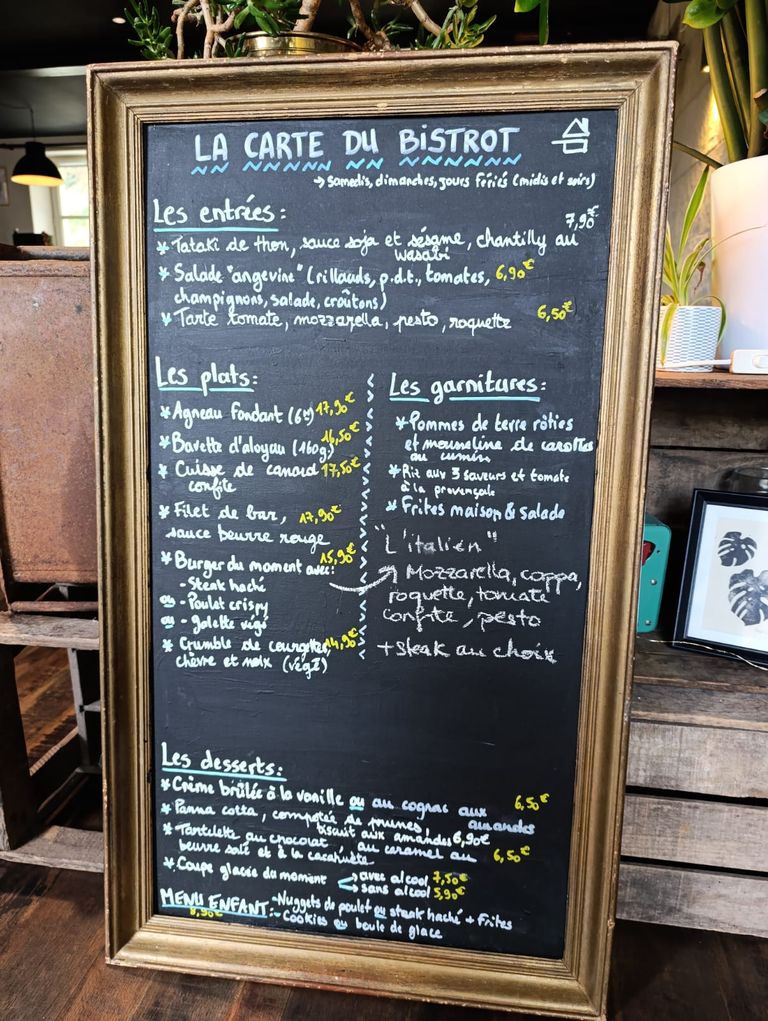 LA CARTE DU BISTROT
→ Samedis, dimanches, jours fériés (midis et soirs)
Les entrées :
7,90€
* Tataki de thon, sauce soja et sésame, chantilly au
wasabi
* Salade "angevine" (rillauds, p.d.t., tomates, 6,90€
champignons, salade, croûtons)
* Tarte tomate, mozzarella, pesto, roquette 6,50€
Les plats :
* Agneau fondant (6h) 17,90€
* Bavette d'aloyau (160g) 16,50€
* Cuisse de canard 17,50€
confite
* Filet de bar, 17,90€
sauce beurre rouge
* Burger du moment avec: 15,90€
- Steak haché
ou - Poulet crispy
ou - galette végé
* Crumble de courgettes, 14,90€
chèvre et noix (végé)
Les garnitures :
* Pommes de terre rôties
et mousseline de carottes
au cumin
* Riz aux 3 saveurs et tomate
à la provençale
* Frites maison & salade
"L'italien"
Mozzarella, coppa,
roquette, tomate
confite, pesto
+ steak au choix
Les desserts :
* Crème brûlée à la vanille ou au cognac aux 6,50€
amandes
* Panna cotta, compotée de prunes,
biscuit aux amandes 6,90€
* Tartelette au chocolat, au caramel au 6,50€
beurre salé et à la cacahuète
* Coupe glacée du moment → avec alcool 7,50€
→ sans alcool 5,90€
MENU ENFANT : - Nuggets de poulet ou steak haché + Frites
8,90€ - Cookies ou boule de glace